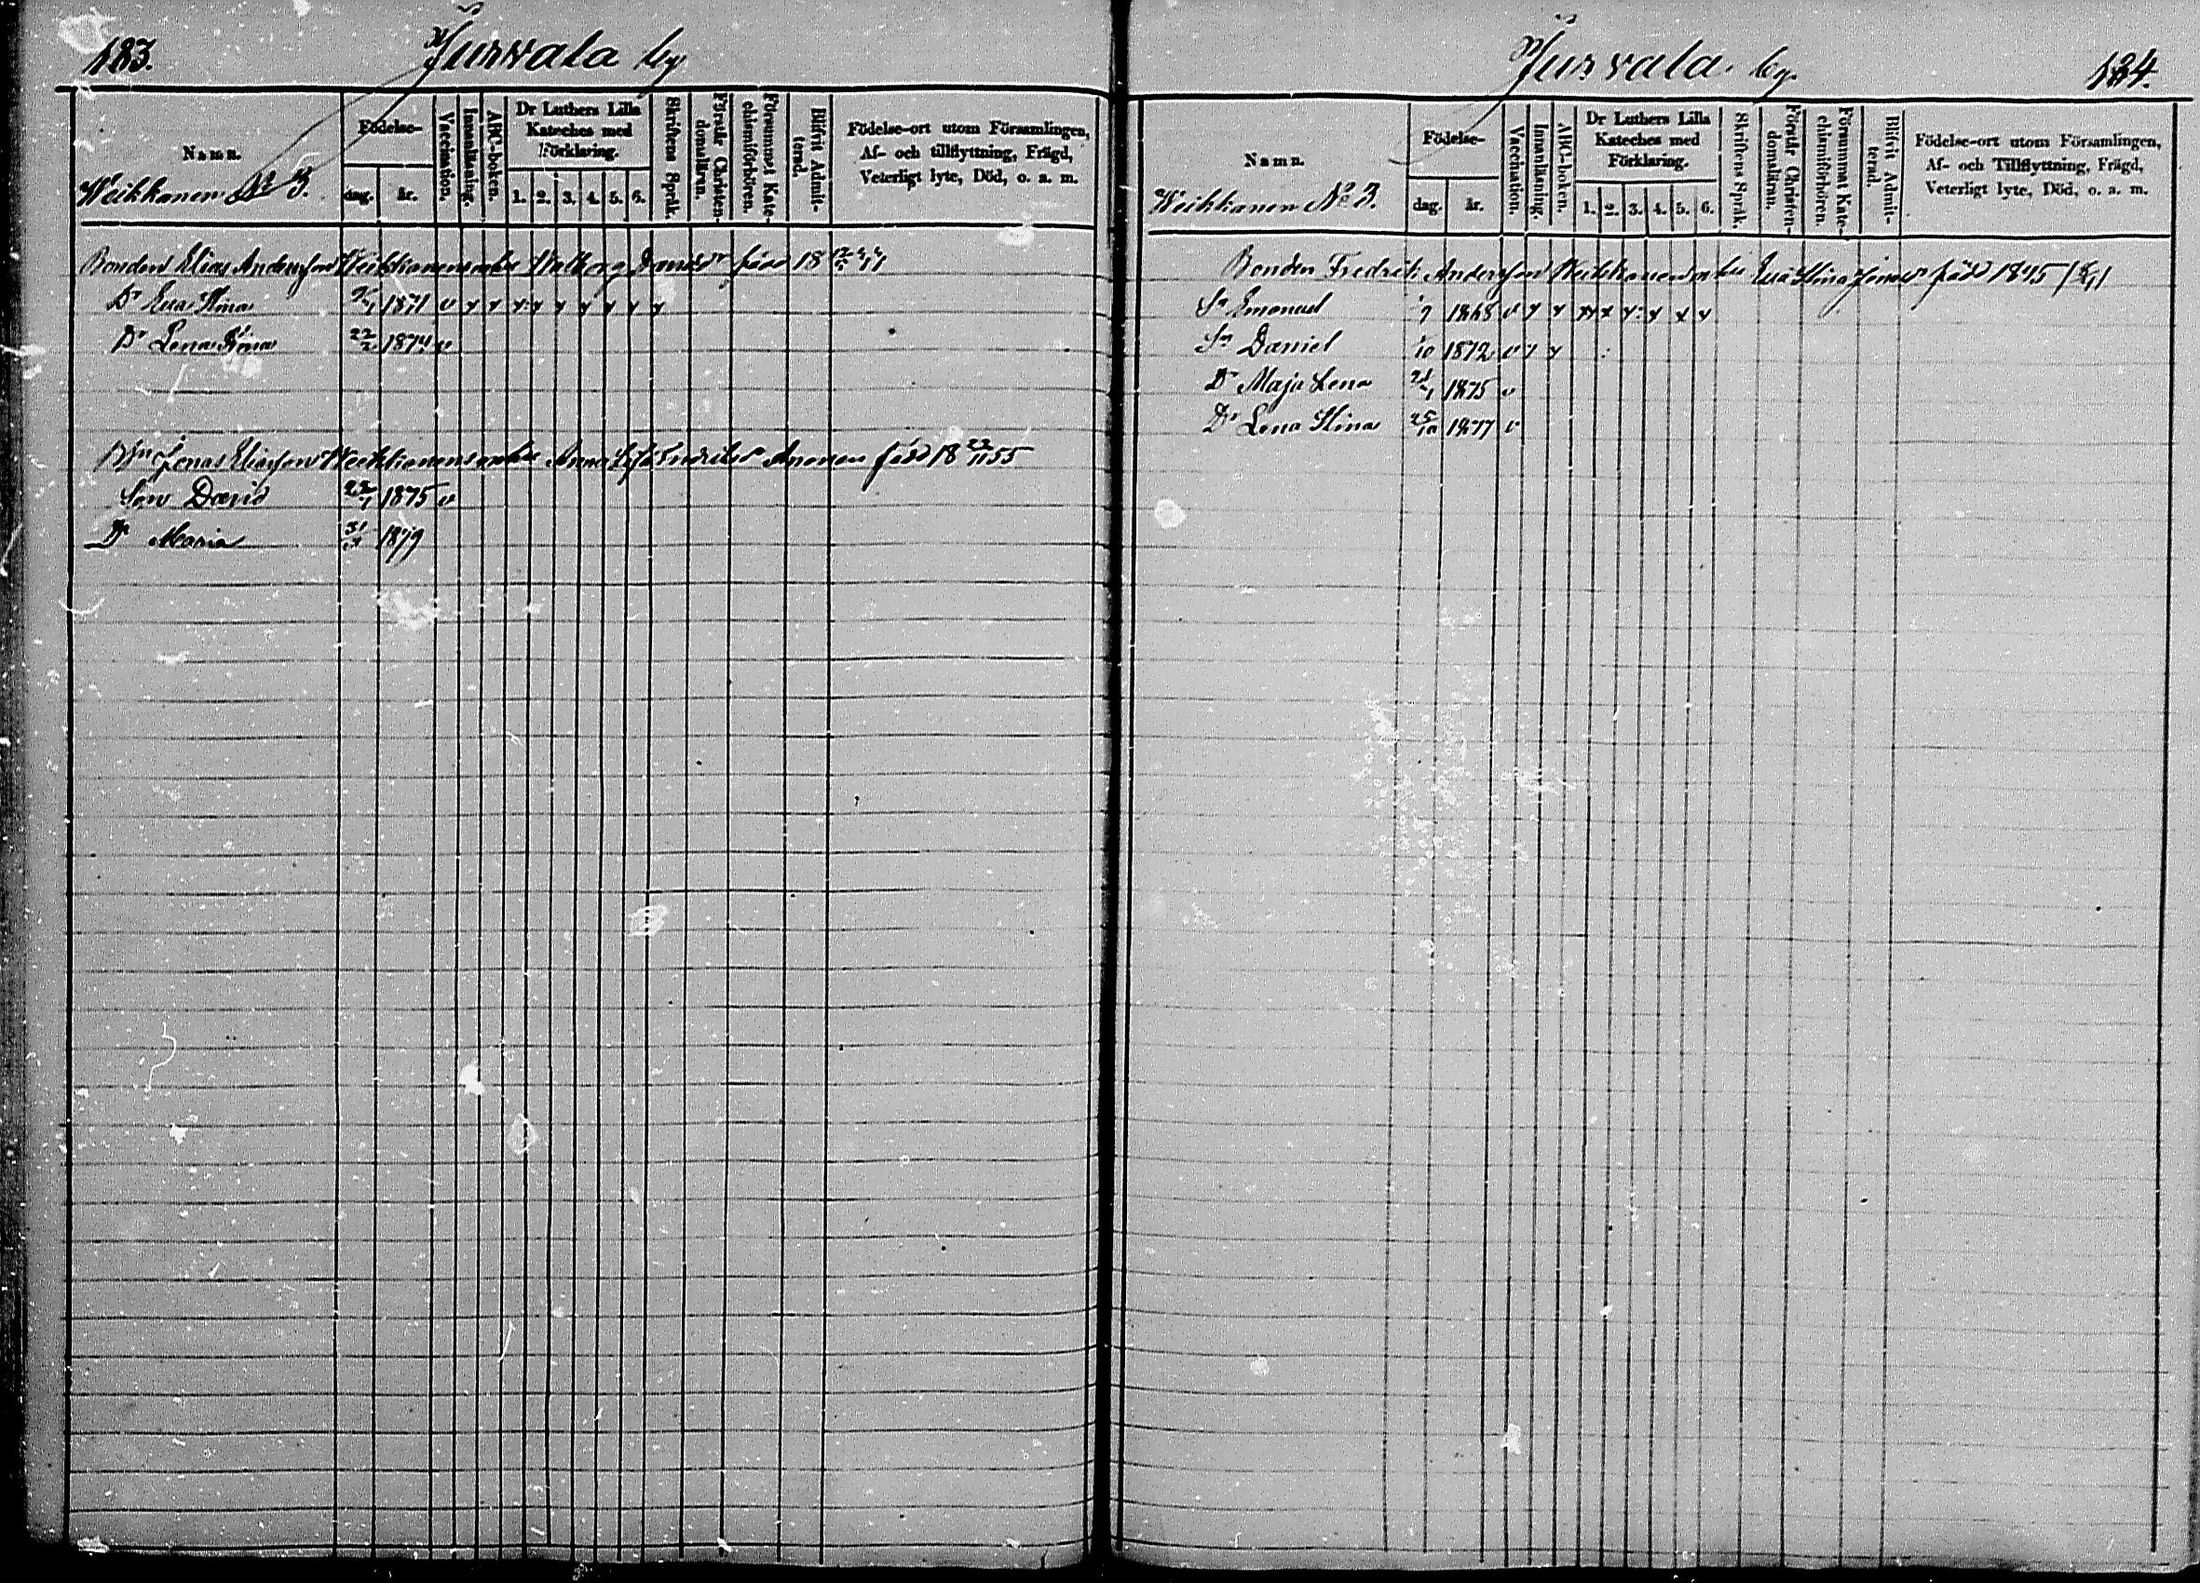 183.
Jurvala by
Namn.
Födelse-
dag.
år.
Vaccination.
Innanläsning.
ABC-boken.
Dr Luthers Lilla
Kateches med
Förklaring.
1. 2. 3. 4. 5. 6.
Skriftens Språk.
Förstår Christen-
domsläran.
Försummat Kate-
chismiförhören.
Blifvit Admit-
terad.
Födelse-ort utom Församlingen,
Af- och tillflyttning, Frägd,
Veterligt lyte, Död, o. a. m.
Weikkanen No 3.
Bonden Elias Andersson Weikkanens enka Walborg född 18
Dr Eva Stina 1871 v x x x x x x x x x
Dr Lena Stina 22/2 1874 v
Jonas Eliasson Weikkanens enka Anna Lisa Andersd. född 18 22/11 55
Son David 1875 v
Dr Maria 31/ 1879
Jurvala by.
184.
Namn.
Födelse-
dag.
år.
Vaccination.
Innanläsning.
ABC-boken.
Dr Luthers Lilla
Kateches med
Förklaring.
1. 2. 3. 4. 5. 6.
Skriftens Språk.
Förstår Christen-
domsläran.
Försummat Kate-
chismiförhören.
Blifvit Admit-
terad.
Födelse-ort utom Församlingen,
Af- och Tillflyttning, Frägd,
Veterligt lyte, Död, o. a. m.
Weikkanen No 3.
Bonden Fredrik Andersson Weikkanens enka Eva Stina född 1845
Sn Emanuel 1868 v x x
Sn Daniel 1872 v x x
Dr Maja Lena 1875 v
Dr Lena Stina 25/10 1877 v